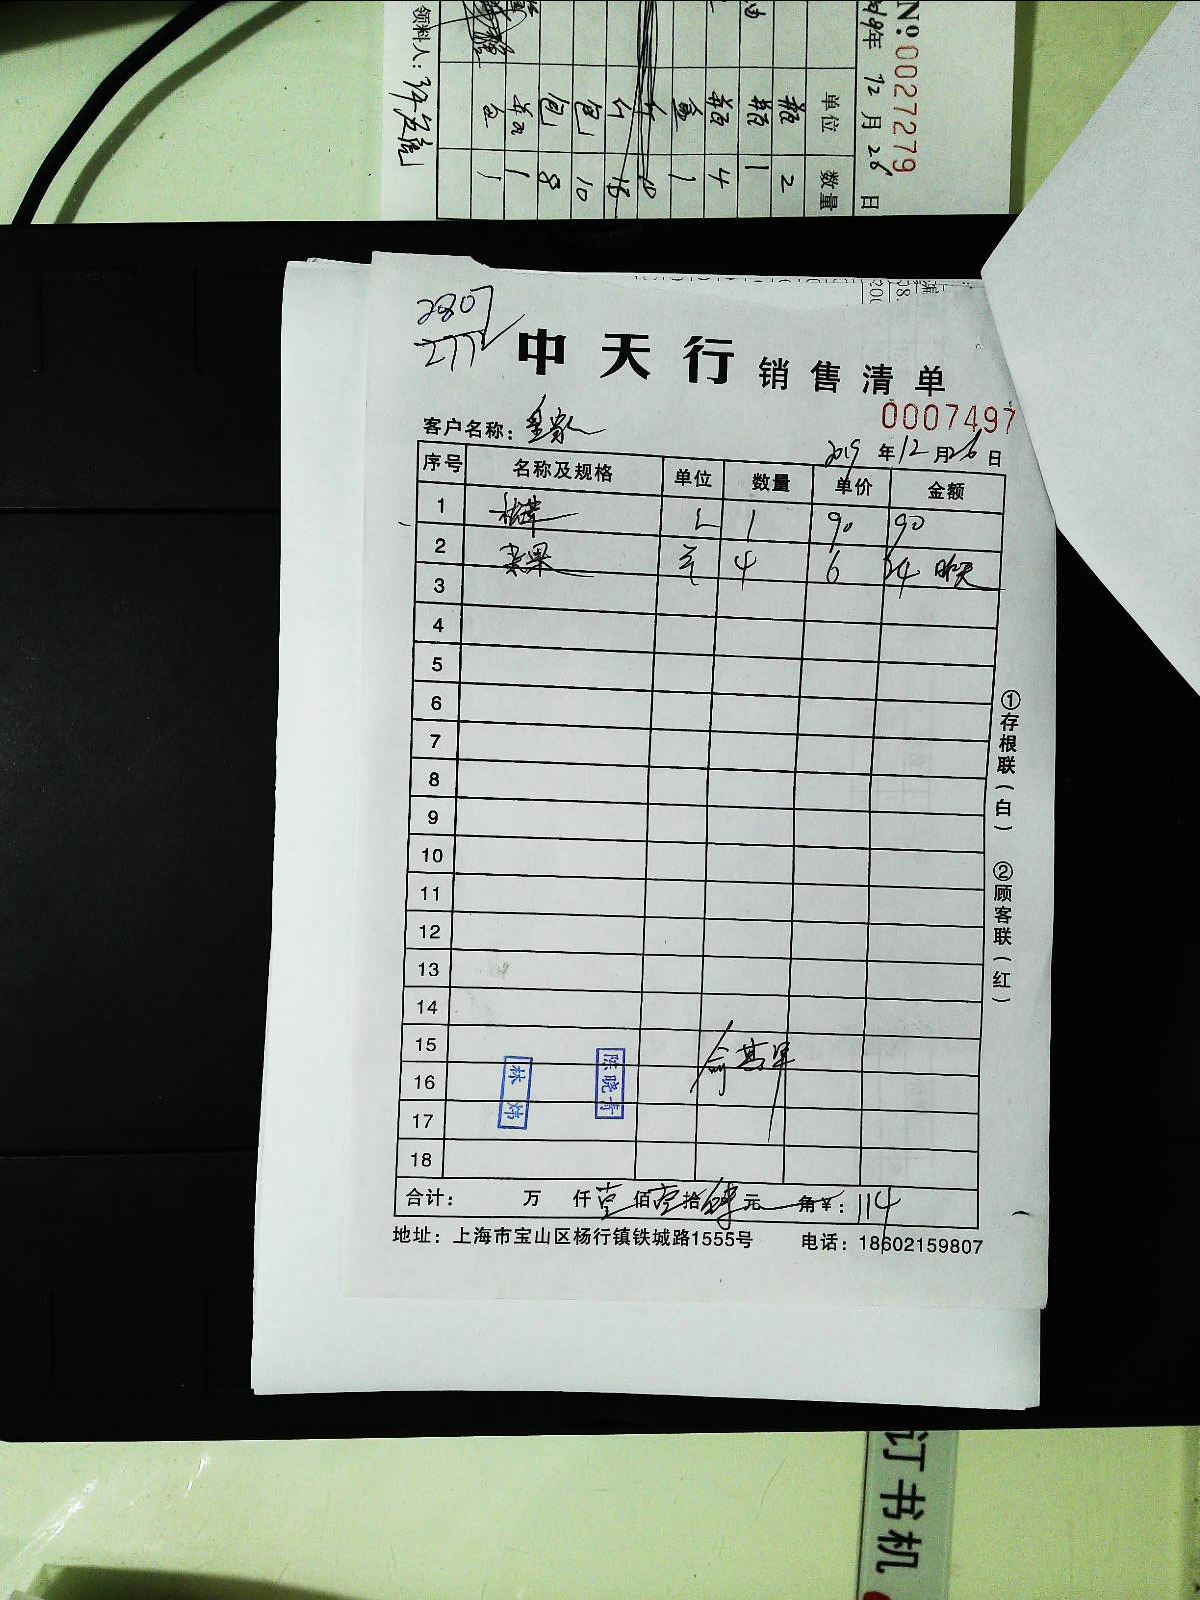 № 0027279
2019年 12月 26日
单位 数量
瓶 2
瓶 1
瓶 4
盒 1
包 10
包 8
瓶 1
包 1
领料人:
中天行 销售清单
0007497
客户名称: 皇家
2019年12月26日
序号 名称及规格 单位 数量 单价 金额
1 1 90 90
2 4 6 24 昨天
3
4
5
6
7
8
9
10
11
12
13
14
15
16
17
18
俞其军
林炜
陈晓青
合计: 万 仟壹佰壹拾肆元 角¥: 114
地址:上海市宝山区杨行镇铁城路1555号 电话:18602159807
①存根联(白) ②顾客联(红)
订书机